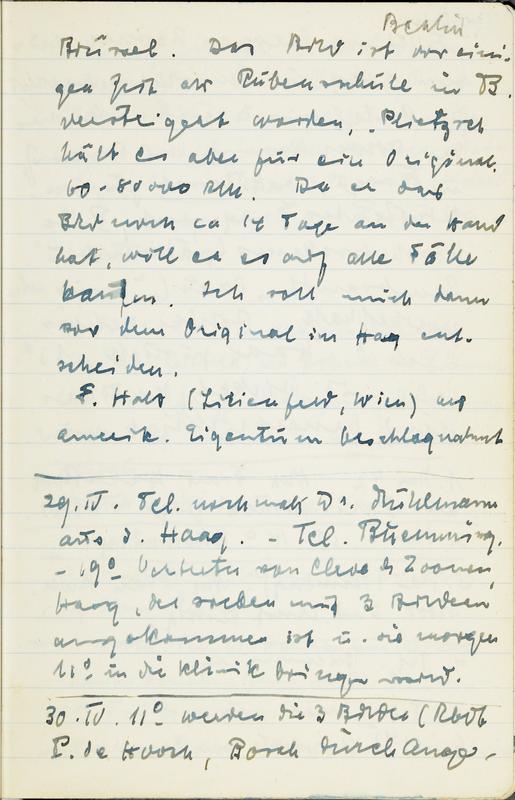 Berlin
Brüssel. Das Bild ist vor eini-
gen Zeit als Rubensschule in B.
versteigert worden, Plietzsch
hält es aber für ein Original.
60-80000 RM. Da er das
Bild noch ca 14 Tage an der Hand
hat, will er es auf alle Fälle
kaufen. Ich soll mich dann
vor dem Original im Haag ent-
scheiden.
F. Hals (Lilienfeld, Wien) als
amerik. Eigentum beschlagnahmt
29.IV. Tel. nochmals Dr. Mühlmann
aus d. Haag. - Tel.
- 19° Vertreter von Cleve & Zoonen,
Haag, der soeben mit 3 Bildern
angekommen ist u. sie morgen
11° in die Klinik bringen wird.
30.IV. 11° werden die 3 Bilder (
P. de Hooch, Bosch durch Ange-